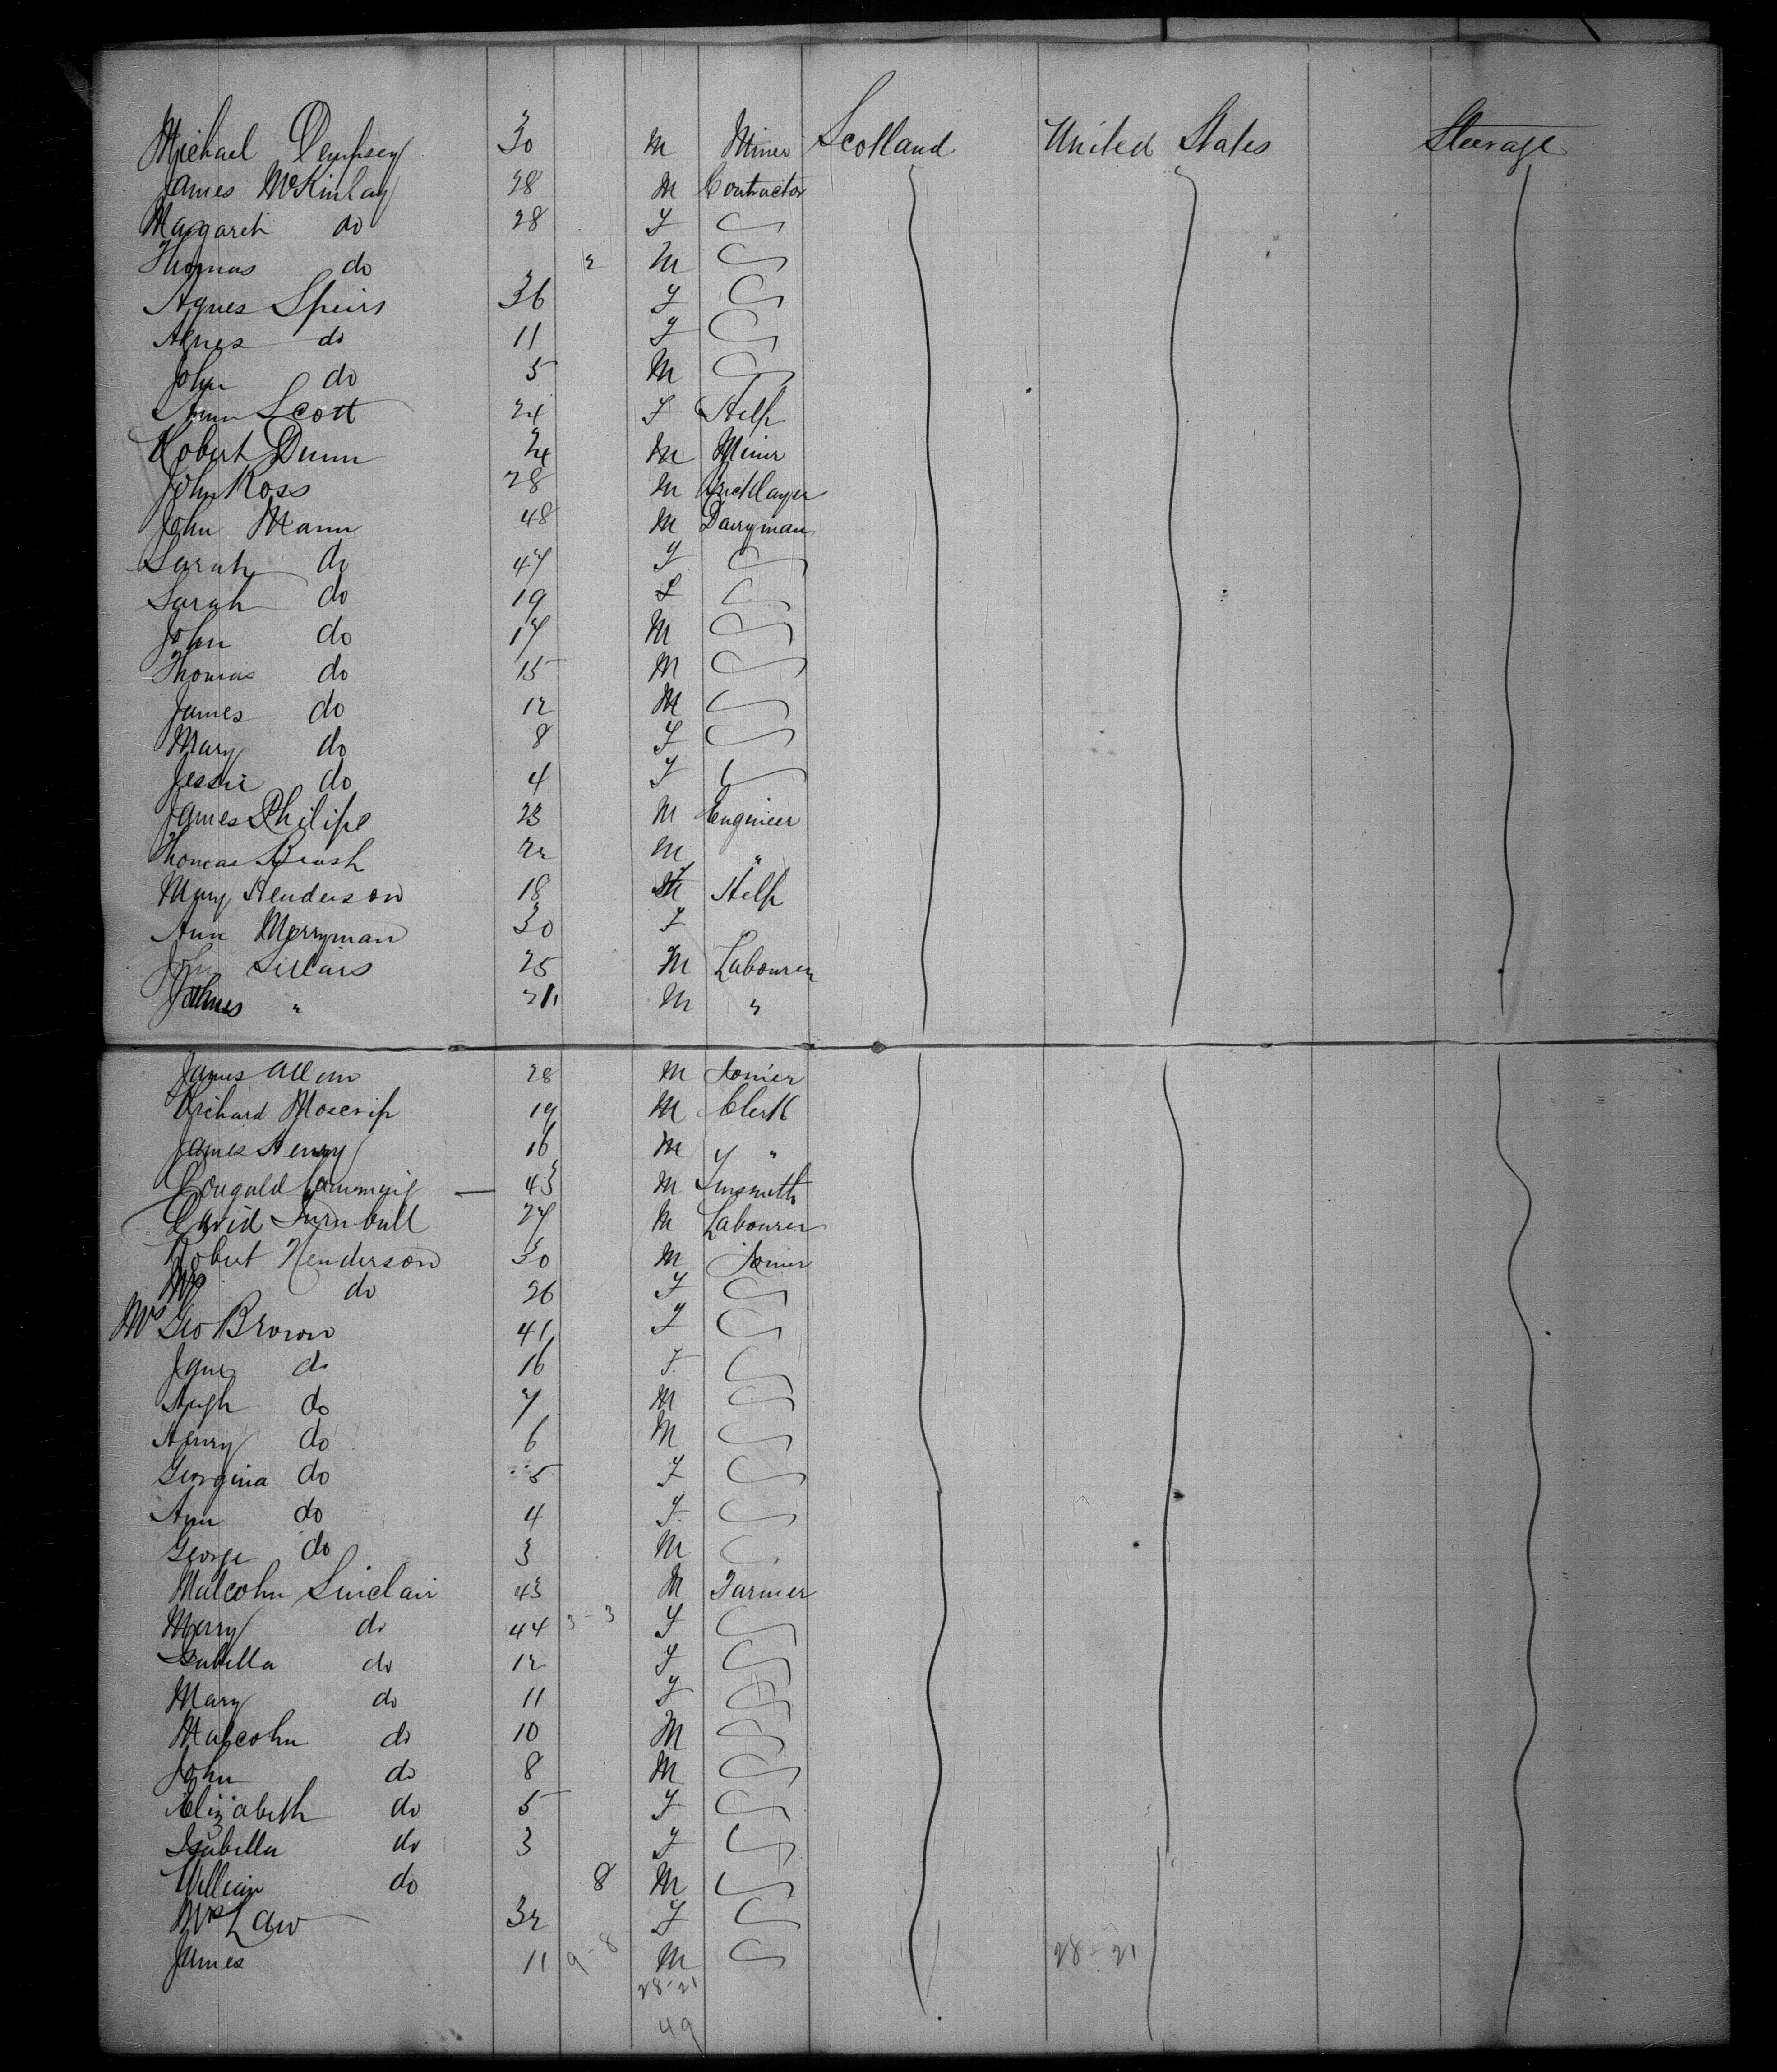 Michael Dempsey 30 M Miner Scotland United States Steerage
James McKinlay 28 M Contractor
Margaret do 28 F
Thomas do 2 M
Agnes Speirs 36 F
Agnes do 11 F
John do 5 M
Ann Scott 24 F Help
Robert Dunn 24 M Miner
John Ross 28 M Bricklayer
John Mann 48 M Dairyman
Sarah do 47 F
Sarah do 19 F
John do 17 M
Thomas do 15 M
James do 12 M
Mary do 8 F
Jessie do 4 F
James Philipe 23 M Engineer
Thomas 22 M "
Mary Henderson 18 F Help
Ann Merryman 30 F
John 25 M Labourer
James " 21 M "
James Allan 28 M Joiner
Richard Moscrip 19 M Clerk
James Henry 16 M "
Dougald 43 M Tinsmith
David Turnbull 27 M Labourer
Robert Henderson 30 M Joiner
Mrs do 26 F
Mrs Geo Brown 41 F
Jane do 16 F
Hugh do 7 M
Henry do 6 M
Georgina do 5 F
Ann do 4 F
George do 3 M
Malcohn Sinclair 43 M Farmer
Merry do 44 3-3 F
Isabella do 12 F
Mary do 11 F
Malcohn do 10 M
John do 8 M
Elizabeth do 5 F
Isabella do 3 F
William do 8 M
Mrs Law 32 F
James 11 9-8 M 28-21
28-21
49